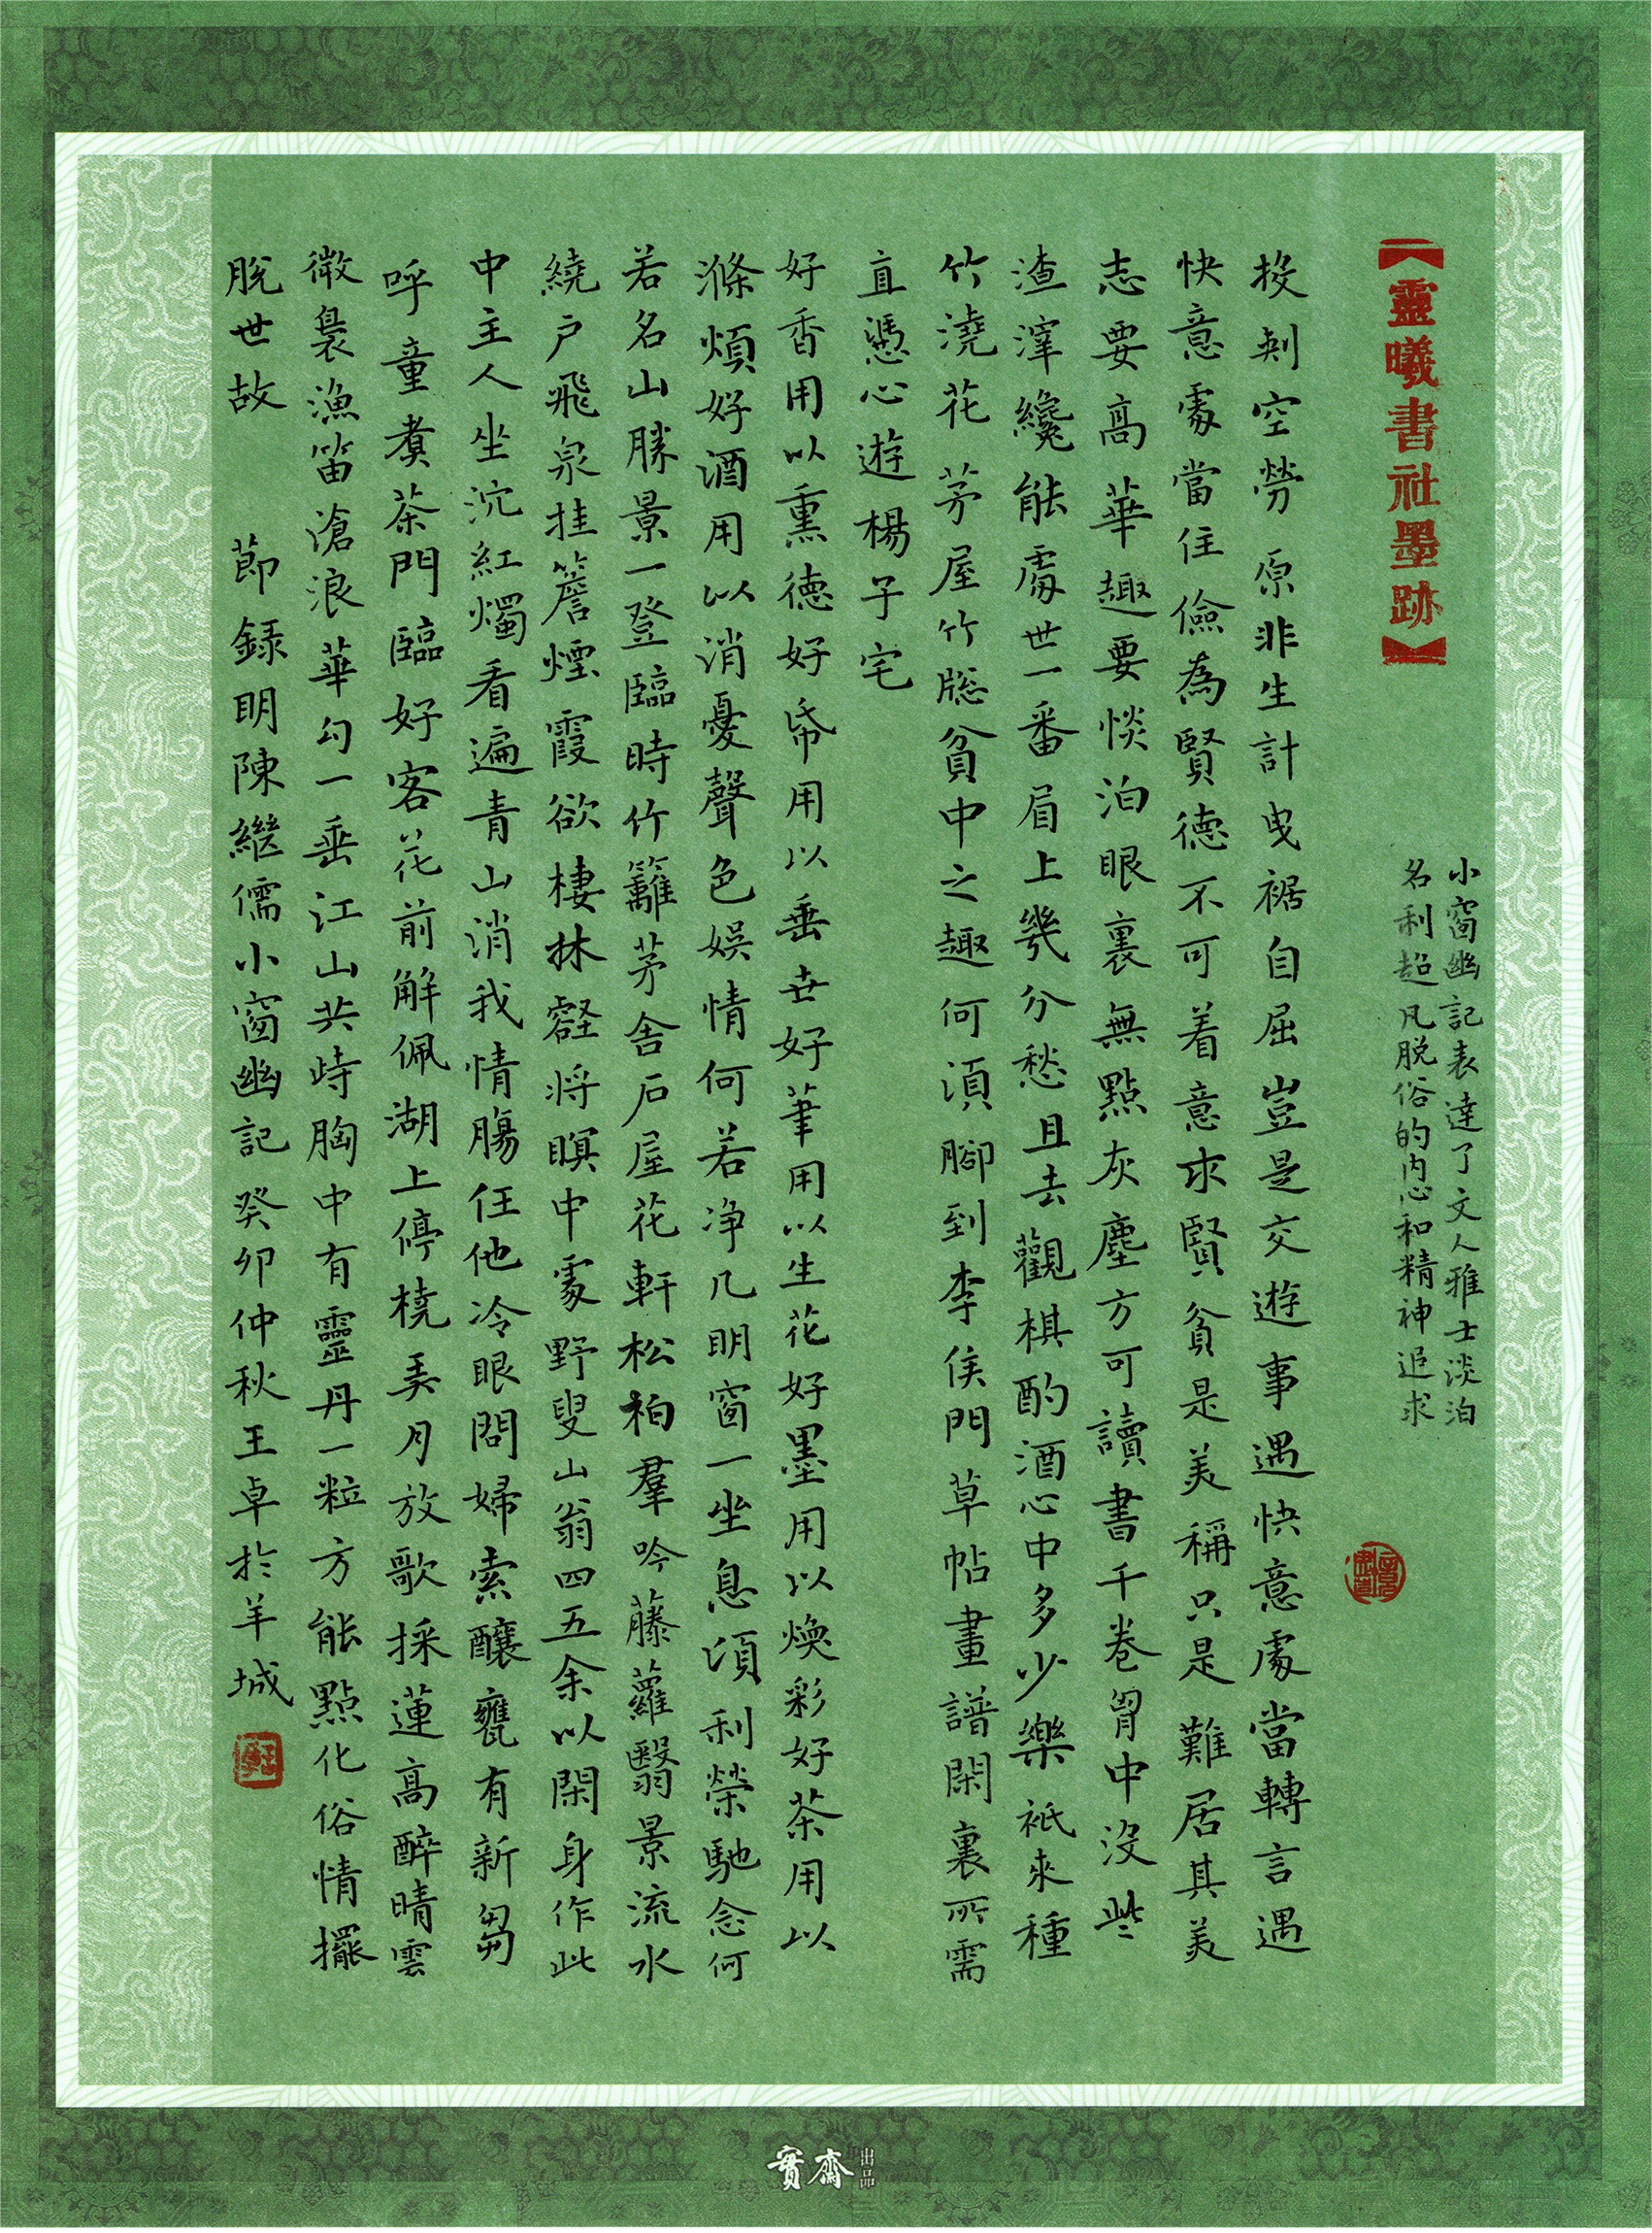 【靈曦書社墨跡】
小窗幽記表達了文人雅士淡泊
名利超凡脫俗的內心和精神追求
投刺空勞原非生計曳裾自屈豈是交遊事遇快意處當轉言遇
快意處當住儉為賢德不可着意求賢貧是美稱只是難居其美
志要高華趣要惔泊眼裏無點灰塵方可讀書千卷胷中沒些
渣滓纔能處世一番眉上幾分愁且去觀棋酌酒心中多少樂衹來種
竹澆花茅屋竹牕貧中之趣何須腳到李侯門草帖畫譜閑裏所需
直憑心遊楊子宅
好香用以熏德好帋用以垂世好筆用以生花好墨用以煥彩好茶用以
滌煩好酒用以消憂聲色娛情何若净几明窗一坐息須利榮馳念何
若名山勝景一登臨時竹籬茅舍石屋花軒松柏羣吟藤蘿翳景流水
繞户飛泉挂簷煙霞欲棲林壑將瞑中處野叟山翁四五余以閑身作此
中主人坐沉紅燭看遍青山消我情腸任他冷眼問婦索釀甕有新芻
呼童煮茶門臨好客花前解佩湖上停橈弄月放歌採蓮高醉晴雲
微裊漁笛滄浪華勾一垂江山共峙胸中有靈丹一粒方能點化俗情擺
脫世故 節錄明陳繼儒小窗幽記癸卯仲秋王卓於羊城
實齋出品